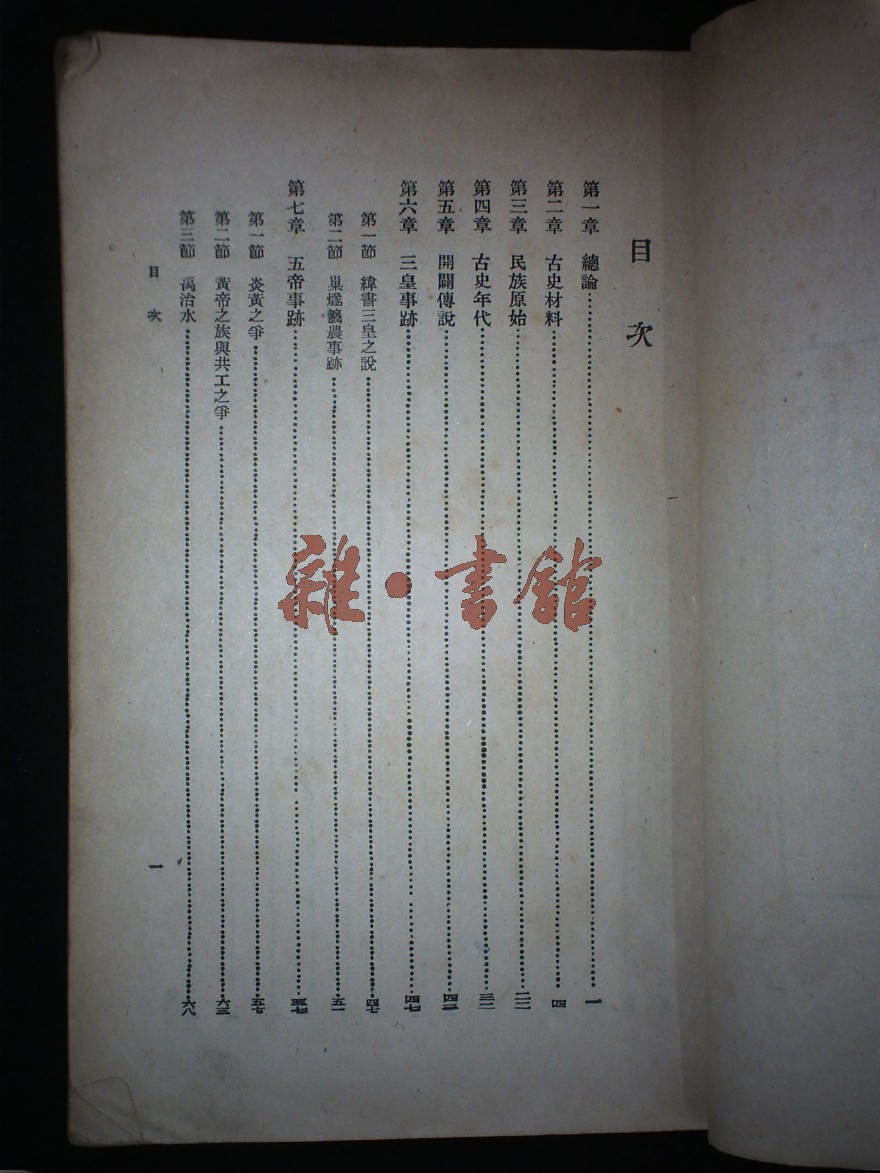 目次
第一章 總論 一
第二章 古史材料 四
第三章 民族原始 二二
第四章 古史年代 三二
第五章 開闢傳說 四三
第六章 三皇事跡 四七
第一節 緯書三皇之說 四七
第二節 巢燧羲農事跡 五一
第七章 五帝事跡 五七
第一節 炎黃之爭 五七
第二節 黃帝之族與共工之爭 六三
第三節 禹治水 六八
目次 一
雜·書館